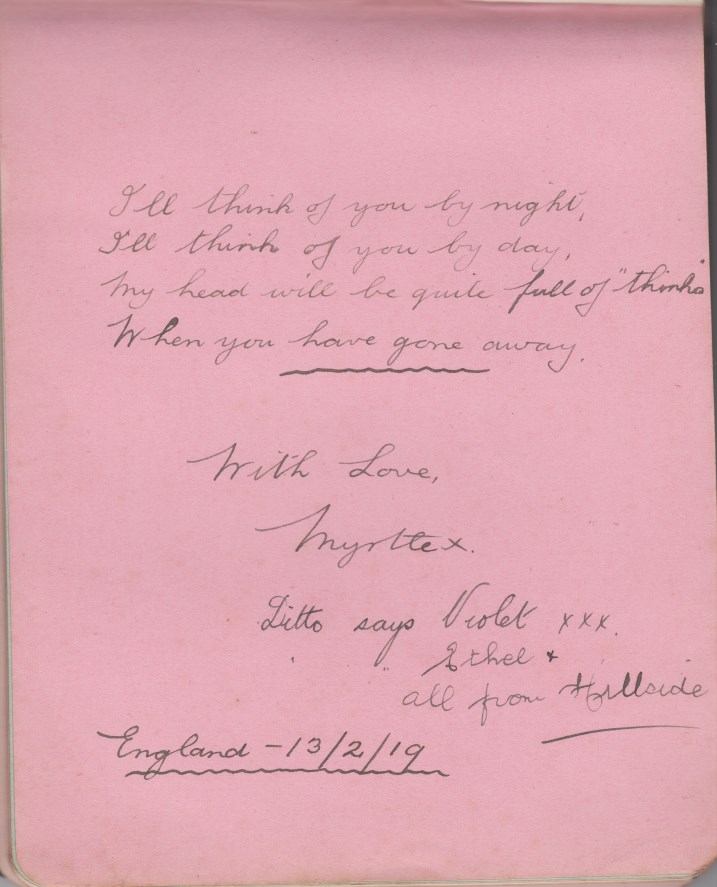 I'll think of you by night,
I'll think of you by day,
My head will be quite full of "thinks"
When you have gone away.
With Love,
Myrtle x.
Ditto says Violet xxx.
" Ethel +
all from Hillside
England - 13/2/19